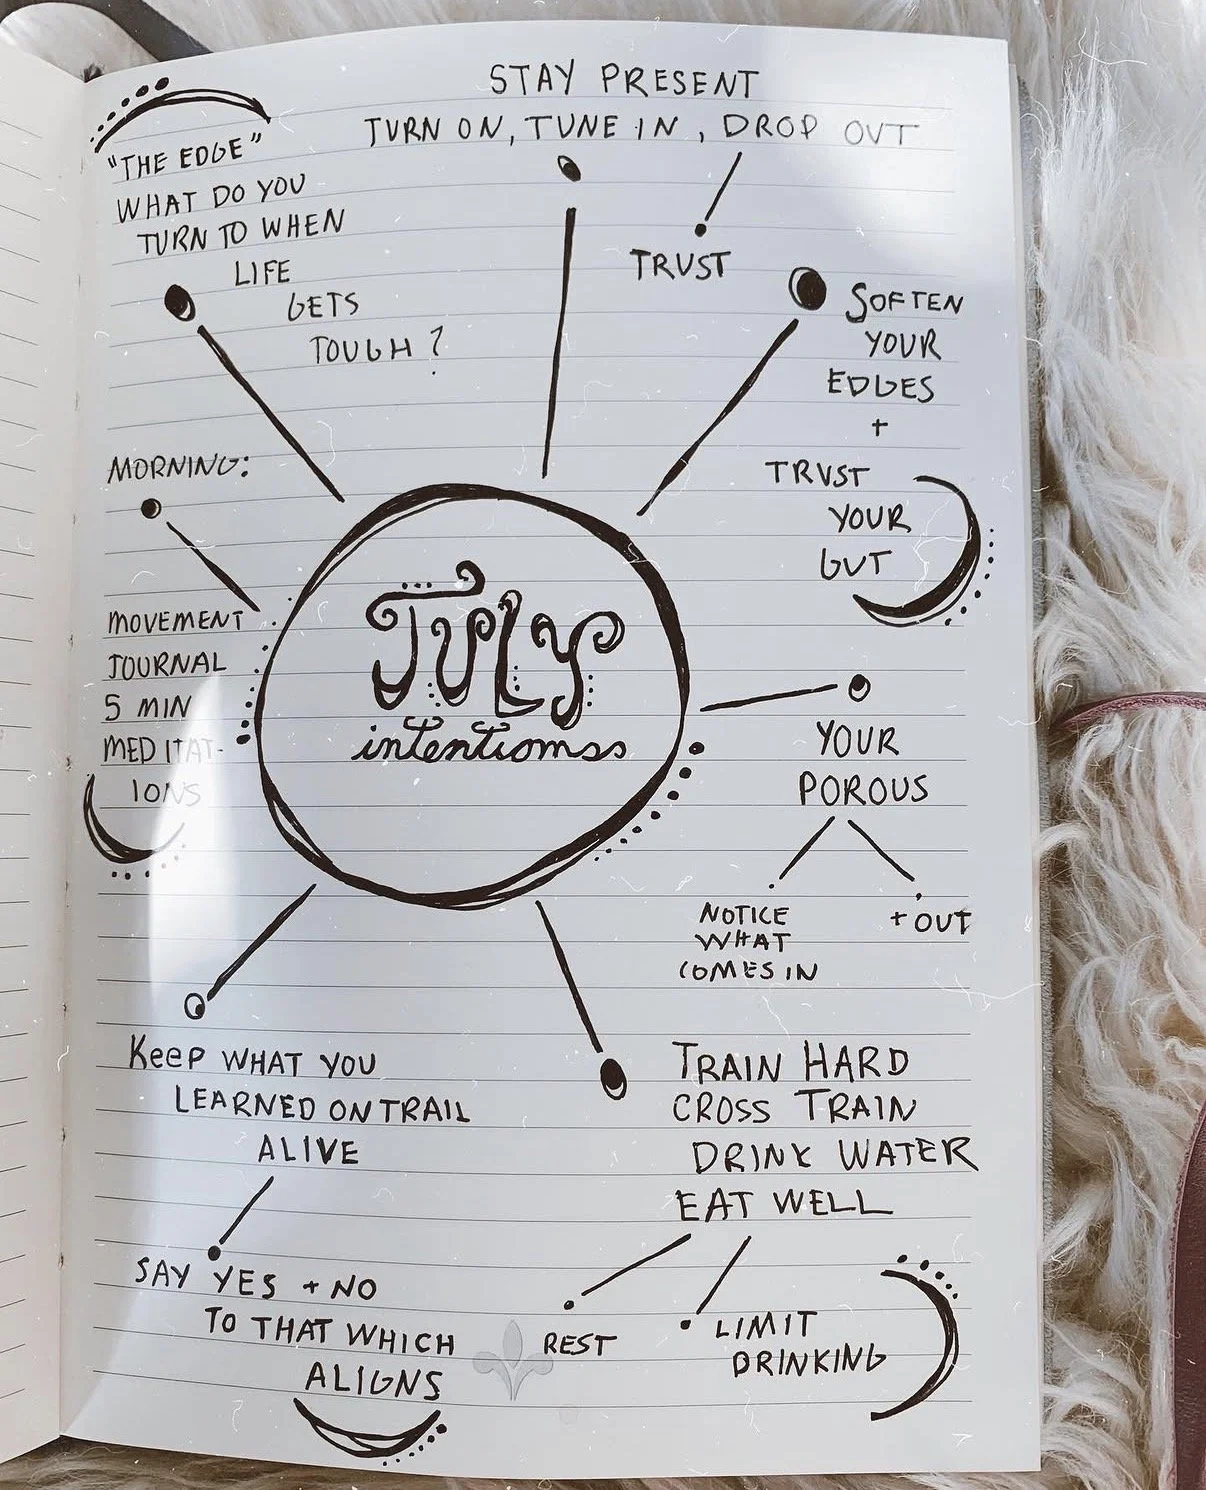 STAY PRESENT
TURN ON, TUNE IN, DROP OUT
TRUST
"THE EDGE"
WHAT DO YOU
TURN TO WHEN
LIFE
GETS
TOUGH?
SOFTEN
YOUR
EDGES
+
TRUST
YOUR
GUT
MORNING:
MOVEMENT
JOURNAL
5 MIN
MEDITAT-
IONS
JULY
intentionss
YOUR
POROUS
NOTICE
WHAT
COMES IN
+ OUT
KeeP WHAT YOU
LEARNED ON TRAIL
ALIVE
SAY YES + NO
TO THAT WHICH
ALIGNS
TRAIN HARD
CROSS TRAIN
DRINK WATER
EAT WELL
REST
LIMIT
DRINKING